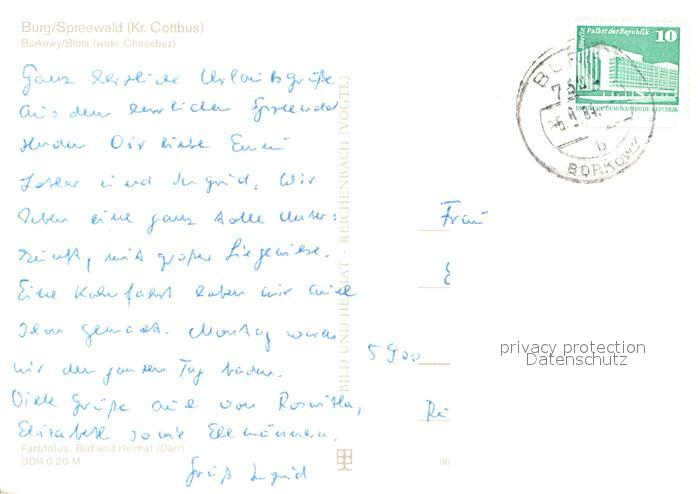 Burg/Spreewald (Kr. Cottbus)
Burkowy/Błota (wokr. Chośebuz)
Ganz herzliche Urlaubsgrüße
aus dem herrlichen Spreewald
senden Dir liebe
Lothar und Ingrid. Wir
haben eine ganz tolle Unter-
kunft, mit großer Liegewiese.
Eine Kahnfahrt haben wir auch
schon gemacht. Montag waren
wir den ganzen Tag baden.
Viele Grüße auch von Roswitha,
Elisabeth sowie Ehemännern.
Gruß Ingrid
Farbfotos: Bild und Heimat (Darr)
DDR 0,20 M
BILD UND HEIMAT · REICHENBACH (VOGTL)
Berlin Palast der Republik 10
DEUTSCHE DEMOKRATISCHE REPUBLIK
BURG
b
BORKOWY
Frau
E
5900
privacy protection
Datenschutz